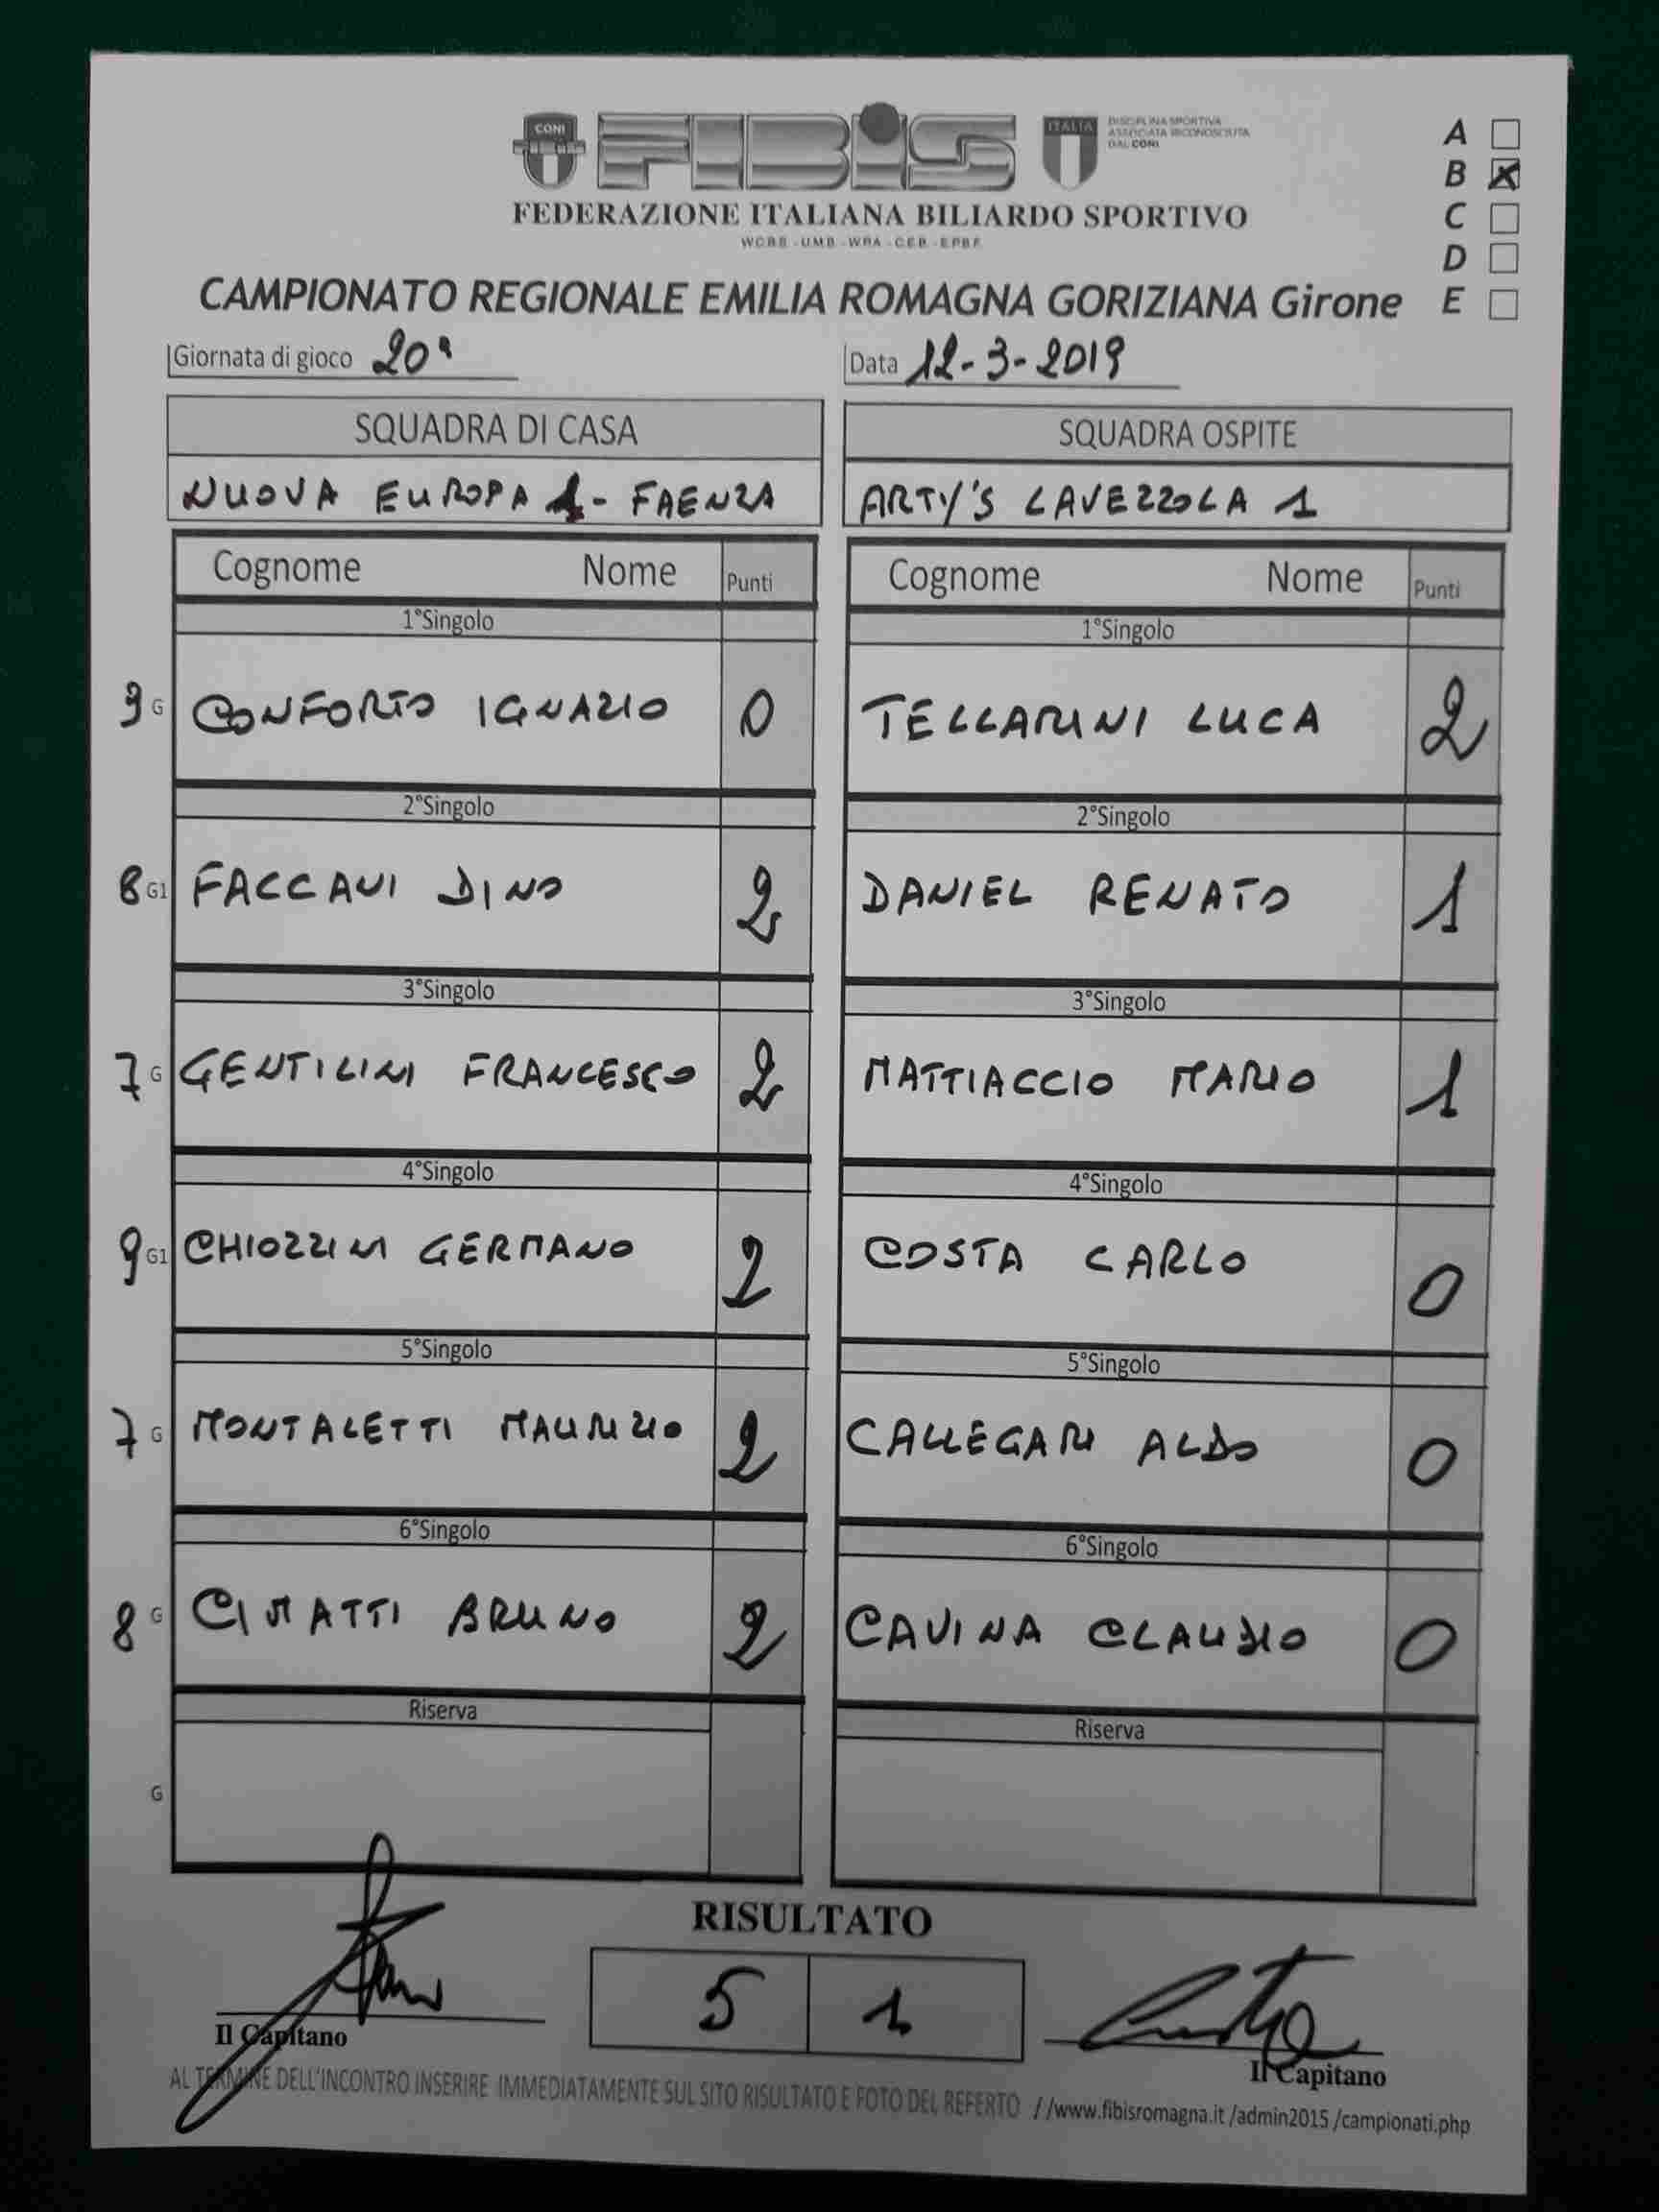 CONI FIBIS ITALIA DISCIPLINA SPORTIVA
ASSOCIATA RICONOSCIUTA
DAL CONI
FEDERAZIONE ITALIANA BILIARDO SPORTIVO
WCBS - UMB - WPA - CEB - EPBF
A
B X
C
D
E
CAMPIONATO REGIONALE EMILIA ROMAGNA GORIZIANA Girone
Giornata di gioco 20ª Data 12-3-2019
SQUADRA DI CASA SQUADRA OSPITE
NUOVA EUROPA 1 - FAENZA ARTY'S LAVEZZOLA 1
Cognome Nome Punti Cognome Nome Punti
1°Singolo 1°Singolo
9 G CONFORTO IGNAZIO 0 TELLARINI LUCA 2
2°Singolo 2°Singolo
8 G1 FACCANI DINO 2 DANIEL RENATO 1
3°Singolo 3°Singolo
7 G GENTILINI FRANCESCO 2 MATTIACCIO MARIO 1
4°Singolo 4°Singolo
9 G1 CHIOZZINI GERMANO 2 COSTA CARLO 0
5°Singolo 5°Singolo
7 G MONTALETTI MAURIZIO 2 CALLEGARI ALDO 0
6°Singolo 6°Singolo
8 G CIMATTI BRUNO 2 CAVINA CLAUDIO 0
Riserva Riserva
G
RISULTATO
5 1
Il Capitano Il Capitano
AL TERMINE DELL'INCONTRO INSERIRE IMMEDIATAMENTE SUL SITO RISULTATO E FOTO DEL REFERTO //www.fibisromagna.it /admin2015 /campionati.php